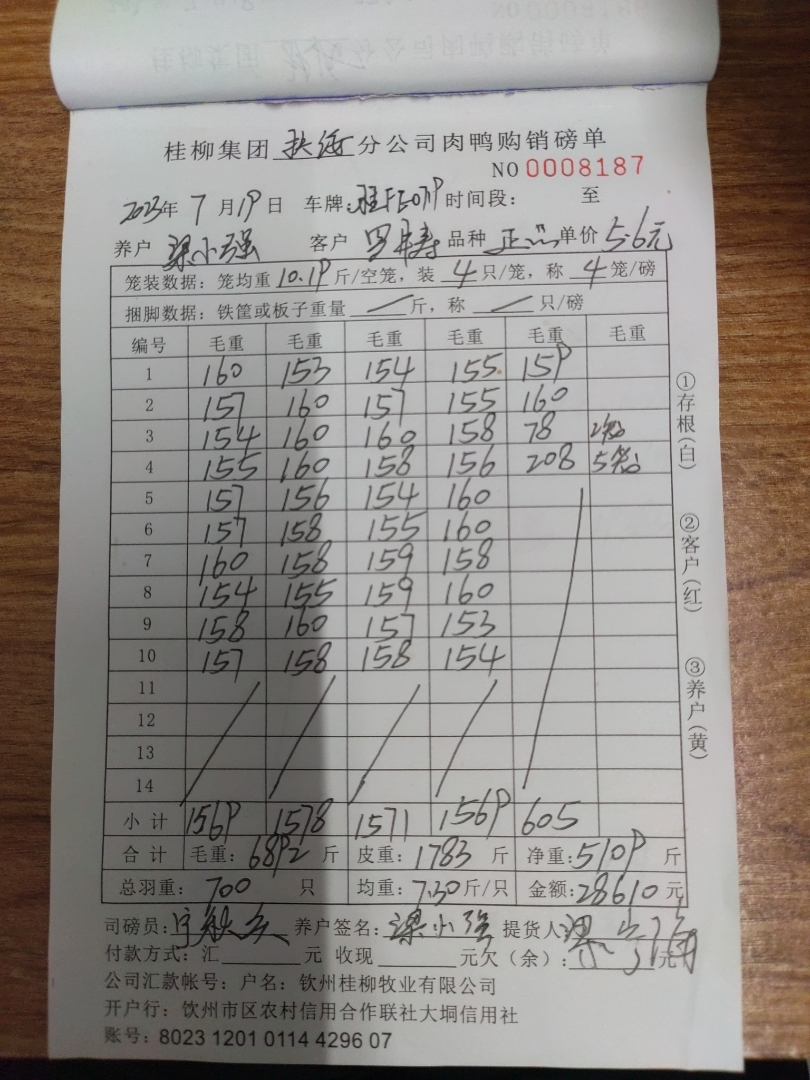 桂柳集团 扶绥 分公司肉鸭购销磅单
NO 0008187
2023年 7 月 19 日 车牌: 时间段： 至
养户 梁小强 客户 罗 品种 正 单价 5.6元
笼装数据：笼均重 10.19 斤/空笼，装 4 只/笼，称 4 笼/磅
捆脚数据：铁筐或板子重量 斤，称 只/磅
编号 毛重 毛重 毛重 毛重 毛重 毛重
1 160 153 154 155 159
2 157 160 157 155 160
3 154 160 160 158 78 2笼
4 155 160 158 156 208 5笼
5 157 156 154 160
6 157 158 155 160
7 160 158 159 158
8 154 155 159 160
9 158 160 157 153
10 157 158 158 154
11
12
13
14
小计 1569 1578 1571 1569 605
合计 毛重: 6892 斤 皮重: 1783 斤 净重: 5109 斤
总羽重: 700 只 均重: 7.30 斤/只 金额: 28610 元
司磅员: 养户签名: 梁小强 提货人
付款方式：汇 元 收现 元欠（余）: 元
公司汇款帐号：户名：钦州桂柳牧业有限公司
开户行：钦州市区农村信用合作联社大垌信用社
账号：8023 1201 0114 4296 07
①存根(白)
②客户(红)
③养户(黄)